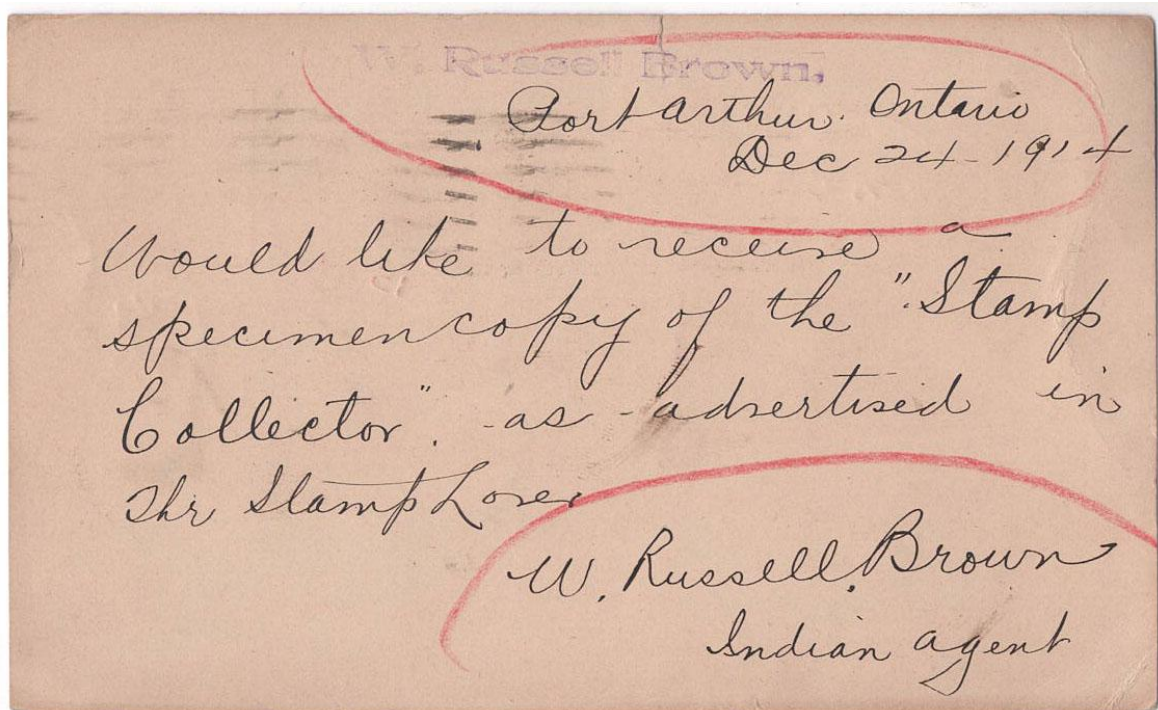 W. Russell Brown.
Port Arthur. Ontario
Dec 24 - 1914
Would like to receive a
specimen copy of the "Stamp
Collector". as advertised in
The Stamp Lover
W. Russell Brown
Indian Agent